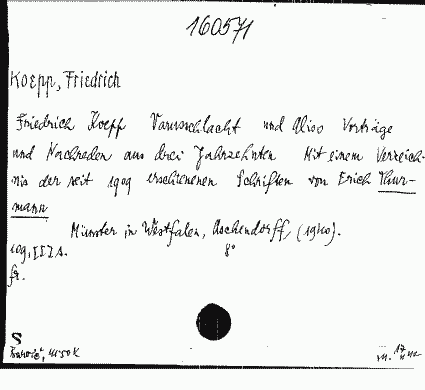 160571
Koepp, Friedrich
Friedrich Koepp Varusschlacht und Aliso Vorträge
und Nachreden aus drei Jahrzehnten Mit einem Verzeich-
nis der seit 1909 erschienenen Schriften von Erich Thur-
mann
Münster in Westfalen, Aschendorff, (1940).
109, III S. 8°
fr.
S